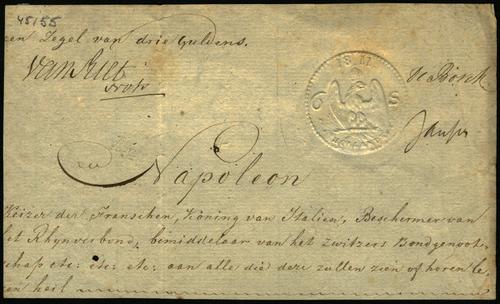 45/55
een Zegel van drie Guldens.
18.11
6 S
De Bosch
Napoleon
Keizer der Franschen, Koning van Italien, Beschermer van
het Rhynverbond, bemiddelaar van het zwitzers Bondgenoot-
schap etc: etc: etc: aan alle die deze zullen zien of horen le-
zen heil